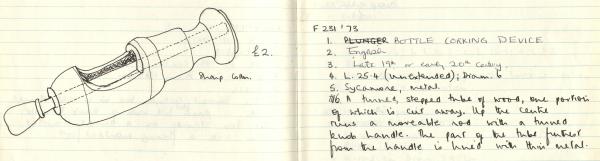 £2.
Sharp Coll.
F 231 '73
1. PLUNGER BOTTLE CORKING DEVICE
2. English
3. Late 19th or early 20th century.
4. L. 25.4 (unextended); Diam. 6
5. Sycamore, metal.
6. A turned, stepped tube of wood, one portion
of which is cut away. Up the centre
runs a moveable rod with a turned
knob handle. The part of the tube further
from the handle is lined with thin metal.